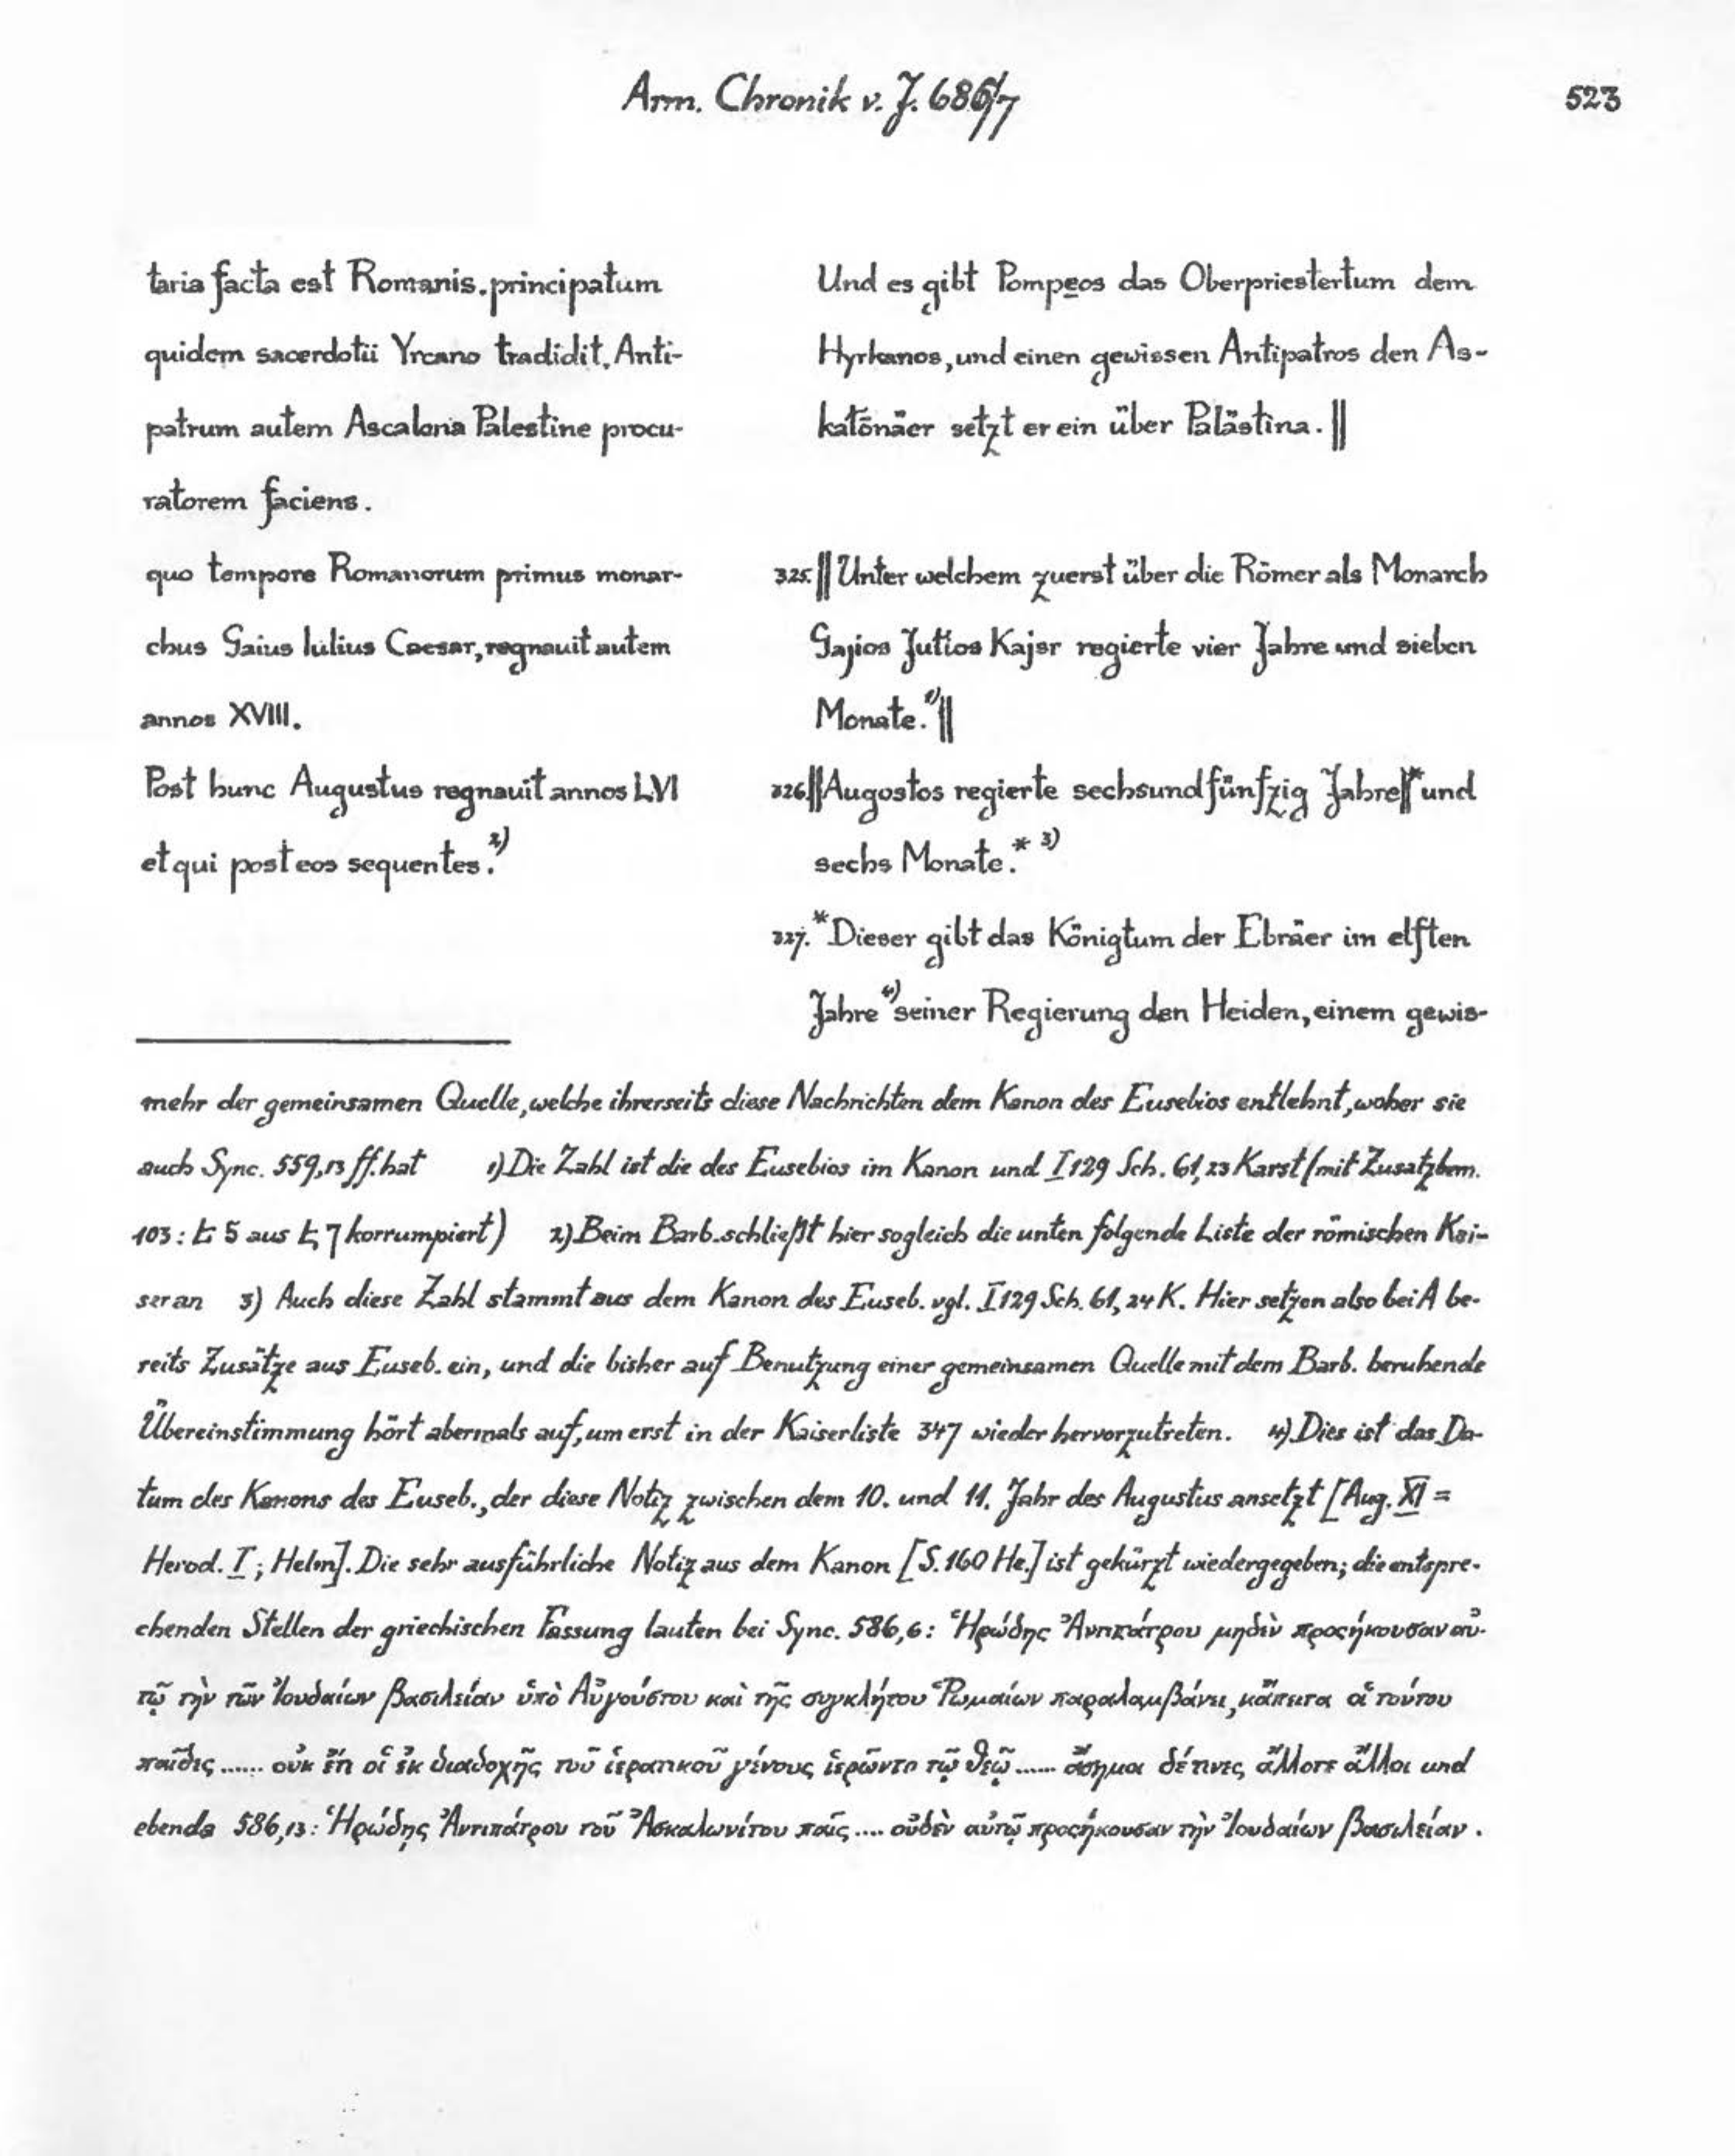 Arm. Chronik v. J. 686/7
523
taria facta est Romanis. principatum
quidem sacerdotii Yrcano tradidit, Anti-
patrum autem Ascalona Palestine procu-
ratorem faciens.
quo tempore Romanorum primus monar-
chus Gaius Iulius Caesar, regnauit autem
annos XVIII.
Post hunc Augustus regnauit annos LVI
et qui post eos sequentes.²⁾
Und es gibt Pompeos das Oberpriestertum dem
Hyrkanos, und einen gewissen Antipatros den As-
katōnäer setzt er ein über Palästina. ||
325. || Unter welchem zuerst über die Römer als Monarch
Gajios Jutios Kajsr regierte vier Jahre und sieben
Monate.¹⁾ ||
326. || Augostos regierte sechsundfünfzig Jahre || * und
sechs Monate. * ³⁾
327. * Dieser gibt das Königtum der Ebräer im elften
Jahre ⁴⁾ seiner Regierung den Heiden, einem gewis-
mehr der gemeinsamen Quelle, welche ihrerseits diese Nachrichten dem Kanon des Eusebios entlehnt, woher sie
auch Sync. 559,13 ff. hat 1) Die Zahl ist die des Eusebios im Kanon und I 129 Sch. 61,23 Karst (mit Zusatzbem.
103: 5 aus 7 korrumpiert) 2) Beim Barb. schließt hier sogleich die unten folgende Liste der römischen Kai-
ser an 3) Auch diese Zahl stammt aus dem Kanon des Euseb. vgl. I 129 Sch. 61,24 K. Hier setzen also bei A be-
reits Zusätze aus Euseb. ein, und die bisher auf Benutzung einer gemeinsamen Quelle mit dem Barb. beruhende
Übereinstimmung hört abermals auf, um erst in der Kaiserliste 347 wieder hervorzutreten. 4) Dies ist das Da-
tum des Kanons des Euseb., der diese Notiz zwischen dem 10. und 11. Jahr des Augustus ansetzt [Aug. XI =
Herod. I; Helm]. Die sehr ausführliche Notiz aus dem Kanon [S. 160 He.] ist gekürzt wiedergegeben; die entspre-
chenden Stellen der griechischen Fassung lauten bei Sync. 586,6: Ἡρώδης Ἀντιπάτρου μηδὲν προσήκουσαν αὐ-
τῷ τὴν τῶν Ἰουδαίων βασιλείαν ὑπὸ Αὐγούστου καὶ τῆς συγκλήτου Ῥωμαίων παραλαμβάνει, κἄπειτα οἱ τούτου
παῖδες ...... οὐκ ἔτι οἱ ἐκ διαδοχῆς τοῦ ἱερατικοῦ γένους ἱερῶντο τῷ θεῷ ...... ἄσημοι δέ τινες ἄλλοτε ἄλλοι und
ebenda 586,13: Ἡρώδης Ἀντιπάτρου τοῦ Ἀσκαλωνίτου παῖς .... οὐδὲν αὐτῷ προσήκουσαν τὴν Ἰουδαίων βασιλείαν.